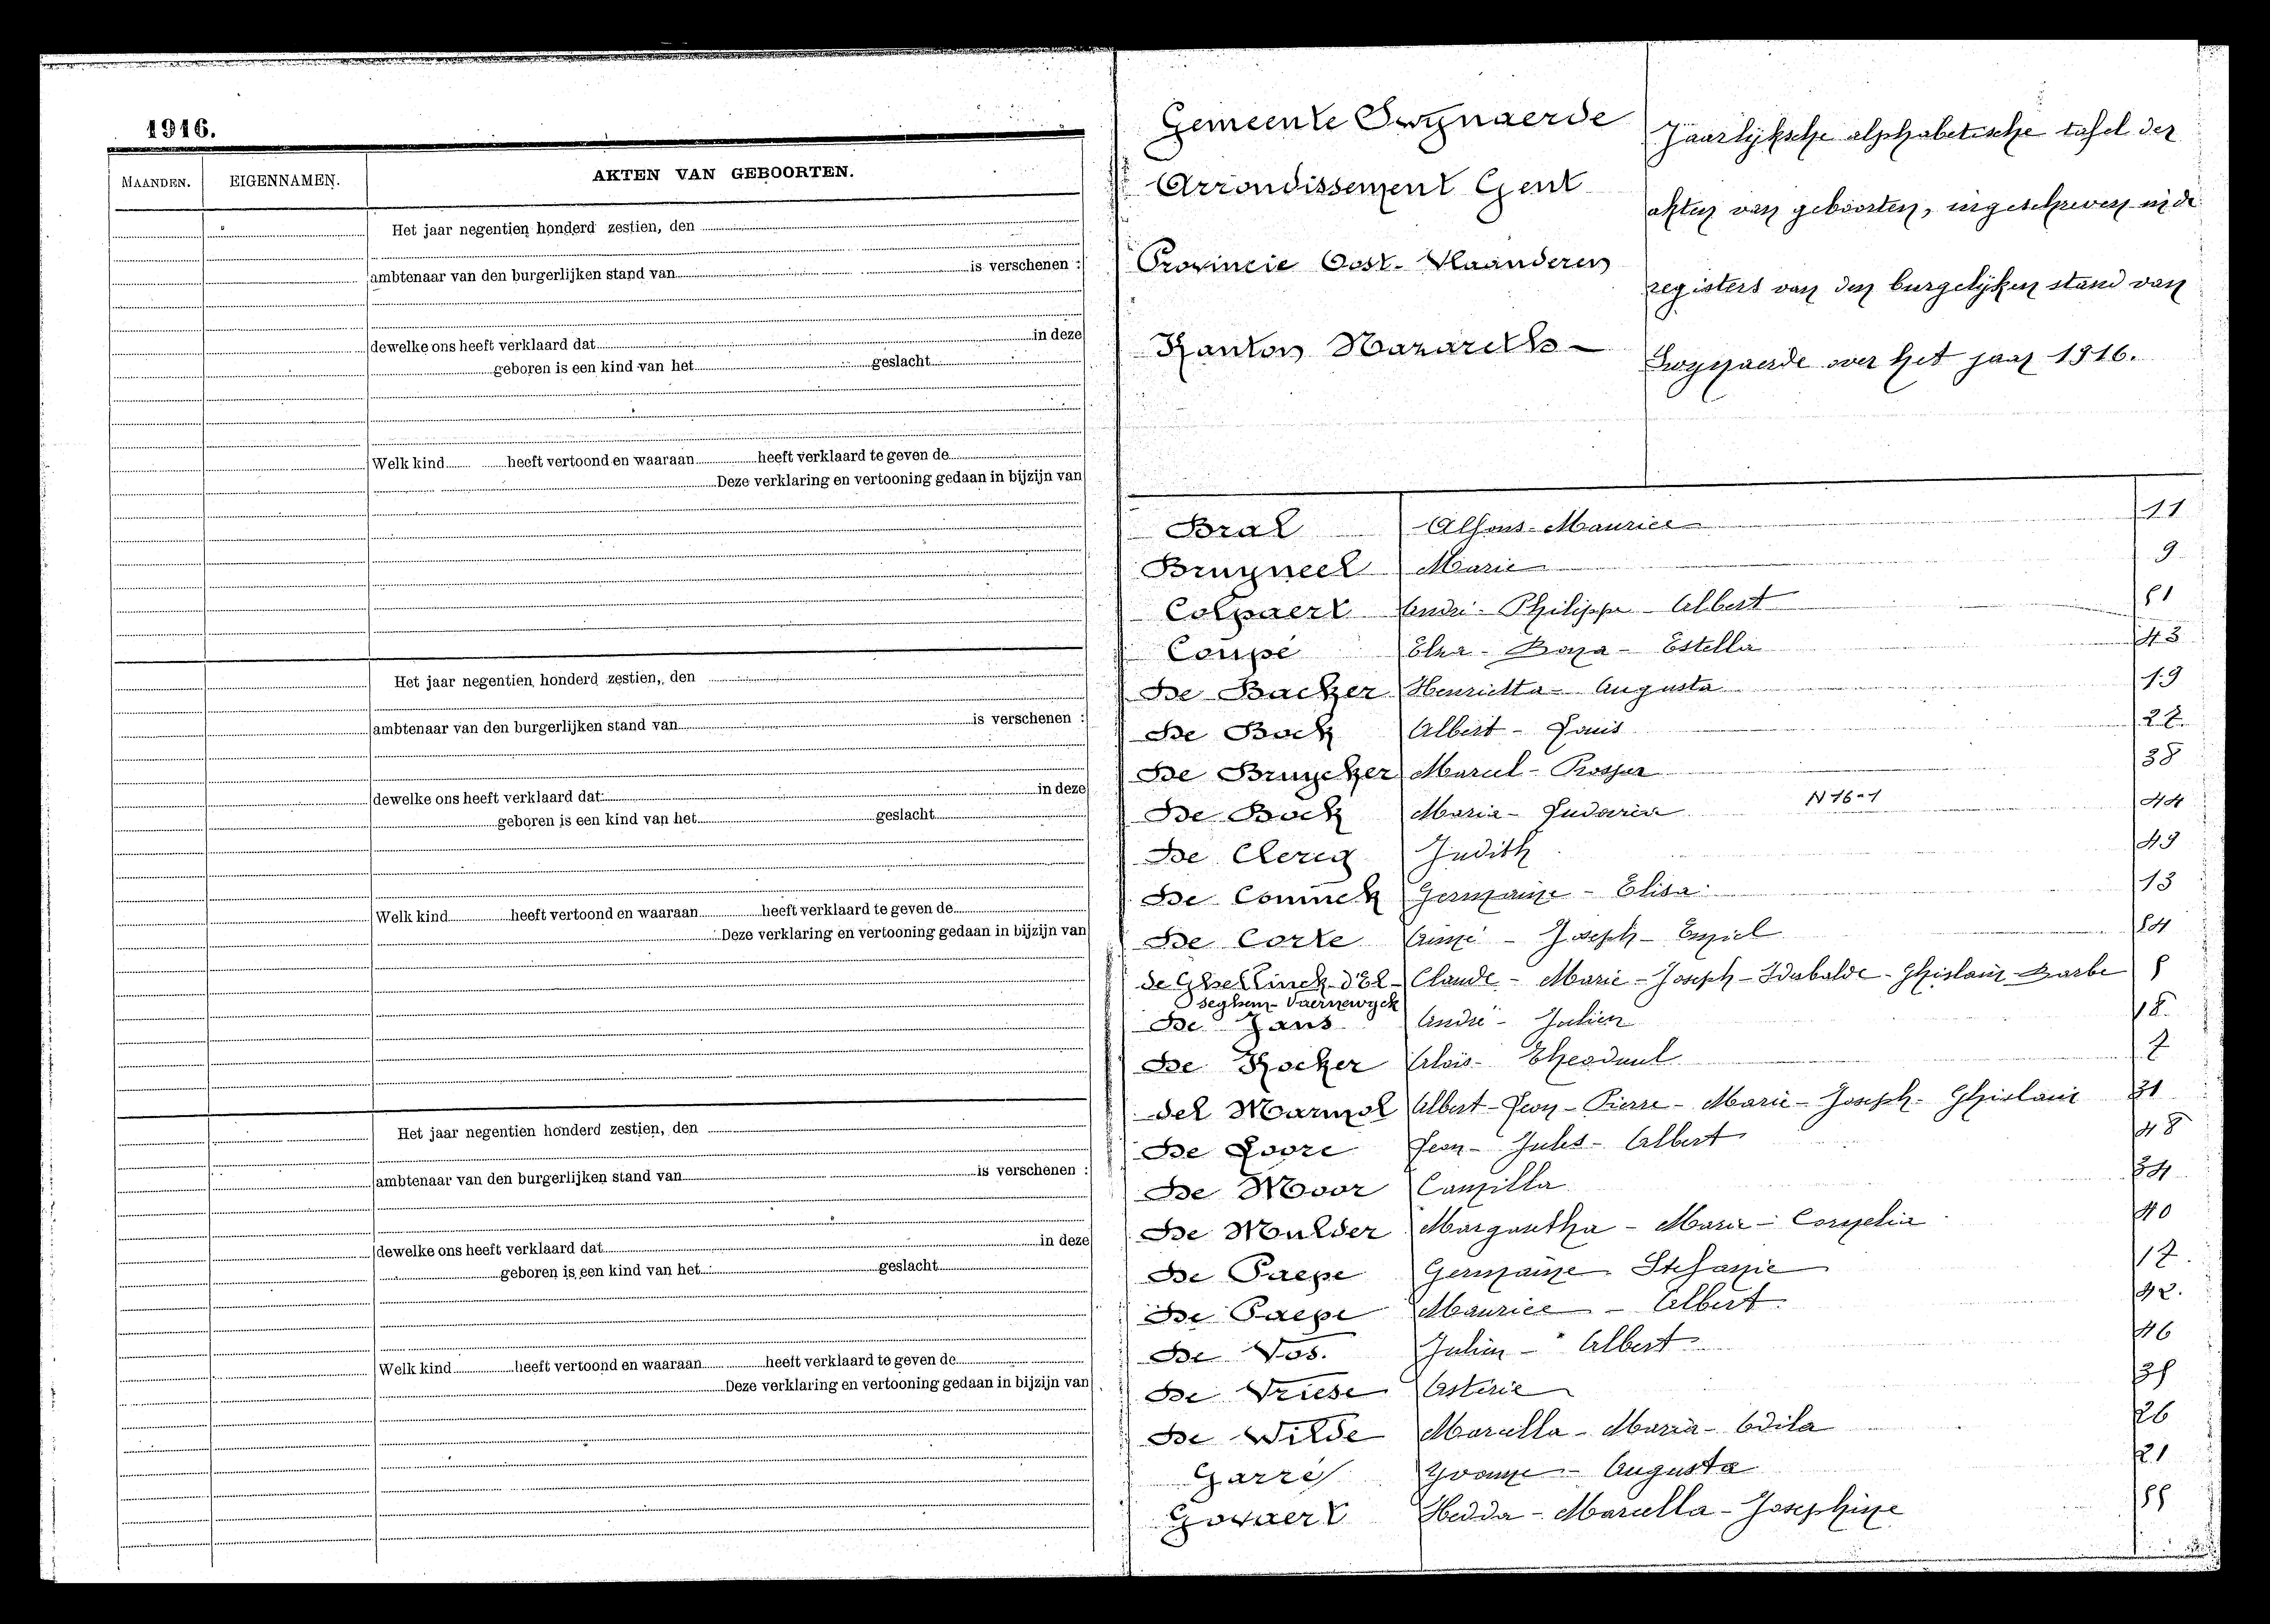 1916.
MAANDEN. EIGENNAMEN. AKTEN VAN GEBOORTEN.
Het jaar negentien honderd zestien, den
ambtenaar van den burgerlijken stand van is verschenen :
dewelke ons heeft verklaard dat in deze
geboren is een kind van het geslacht
Welk kind heeft vertoond en waaraan heeft verklaard te geven de
Deze verklaring en vertooning gedaan in bijzijn van
Het jaar negentien honderd zestien, den
ambtenaar van den burgerlijken stand van is verschenen :
dewelke ons heeft verklaard dat in deze
geboren is een kind van het geslacht
Welk kind heeft vertoond en waaraan heeft verklaard te geven de
Deze verklaring en vertooning gedaan in bijzijn van
Het jaar negentien honderd zestien, den
ambtenaar van den burgerlijken stand van is verschenen :
dewelke ons heeft verklaard dat in deze
geboren is een kind van het geslacht
Welk kind heeft vertoond en waaraan heeft verklaard te geven de
Deze verklaring en vertooning gedaan in bijzijn van
Gemeente Swynaerde
Arrondissement Gent
Provincie Oost-Vlaanderen
Kanton Nazareth
Jaarlijksche alphabetische tafel der
akten van geboorten, ingeschreven in de
registers van den burgelijken stand van
Swynaerde over het jaar 1916.
Bral Alfons-Maurice 11
Bruyneel Marie 9
Colpaert André-Philippe-Albert 51
Coupé Elza-Estella 43
De Backer Henrietta-Augusta 19
De Bock Albert-Louis 27
De Bruycker Marcel-Prosper 38
De Bock Maria-Ludovica N 16-1 44
De Clercq Judith 49
De Coninck Germaine-Elisa 13
De Corte Aimé-Joseph-Emiel 54
de Ghellinck-d'El- Claude-Marie-Joseph-Idubalde-Ghislain-Barbe 5
seghem-Vaernewyck
De Jans André-Julien 18
De Kocker Aloïs-Theoduul 7
del Marmol Albert-Leon-Pierre-Marie-Joseph-Ghislain 31
De Loore Leon-Jules-Albert 48
De Moor Camilla 34
De Mulder Margaretha-Marie-Cornelia 40
De Paepe Germaine Stefanie 17
De Paepe Maurice-Albert 42.
De Vos. Julien-Albert 46
De Vriese Astérie 35
De Wilde Marcella-Maria-Odila 26
Garré Yvonne-Augusta 21
Govaert Hedda-Marcella-Josephine 55